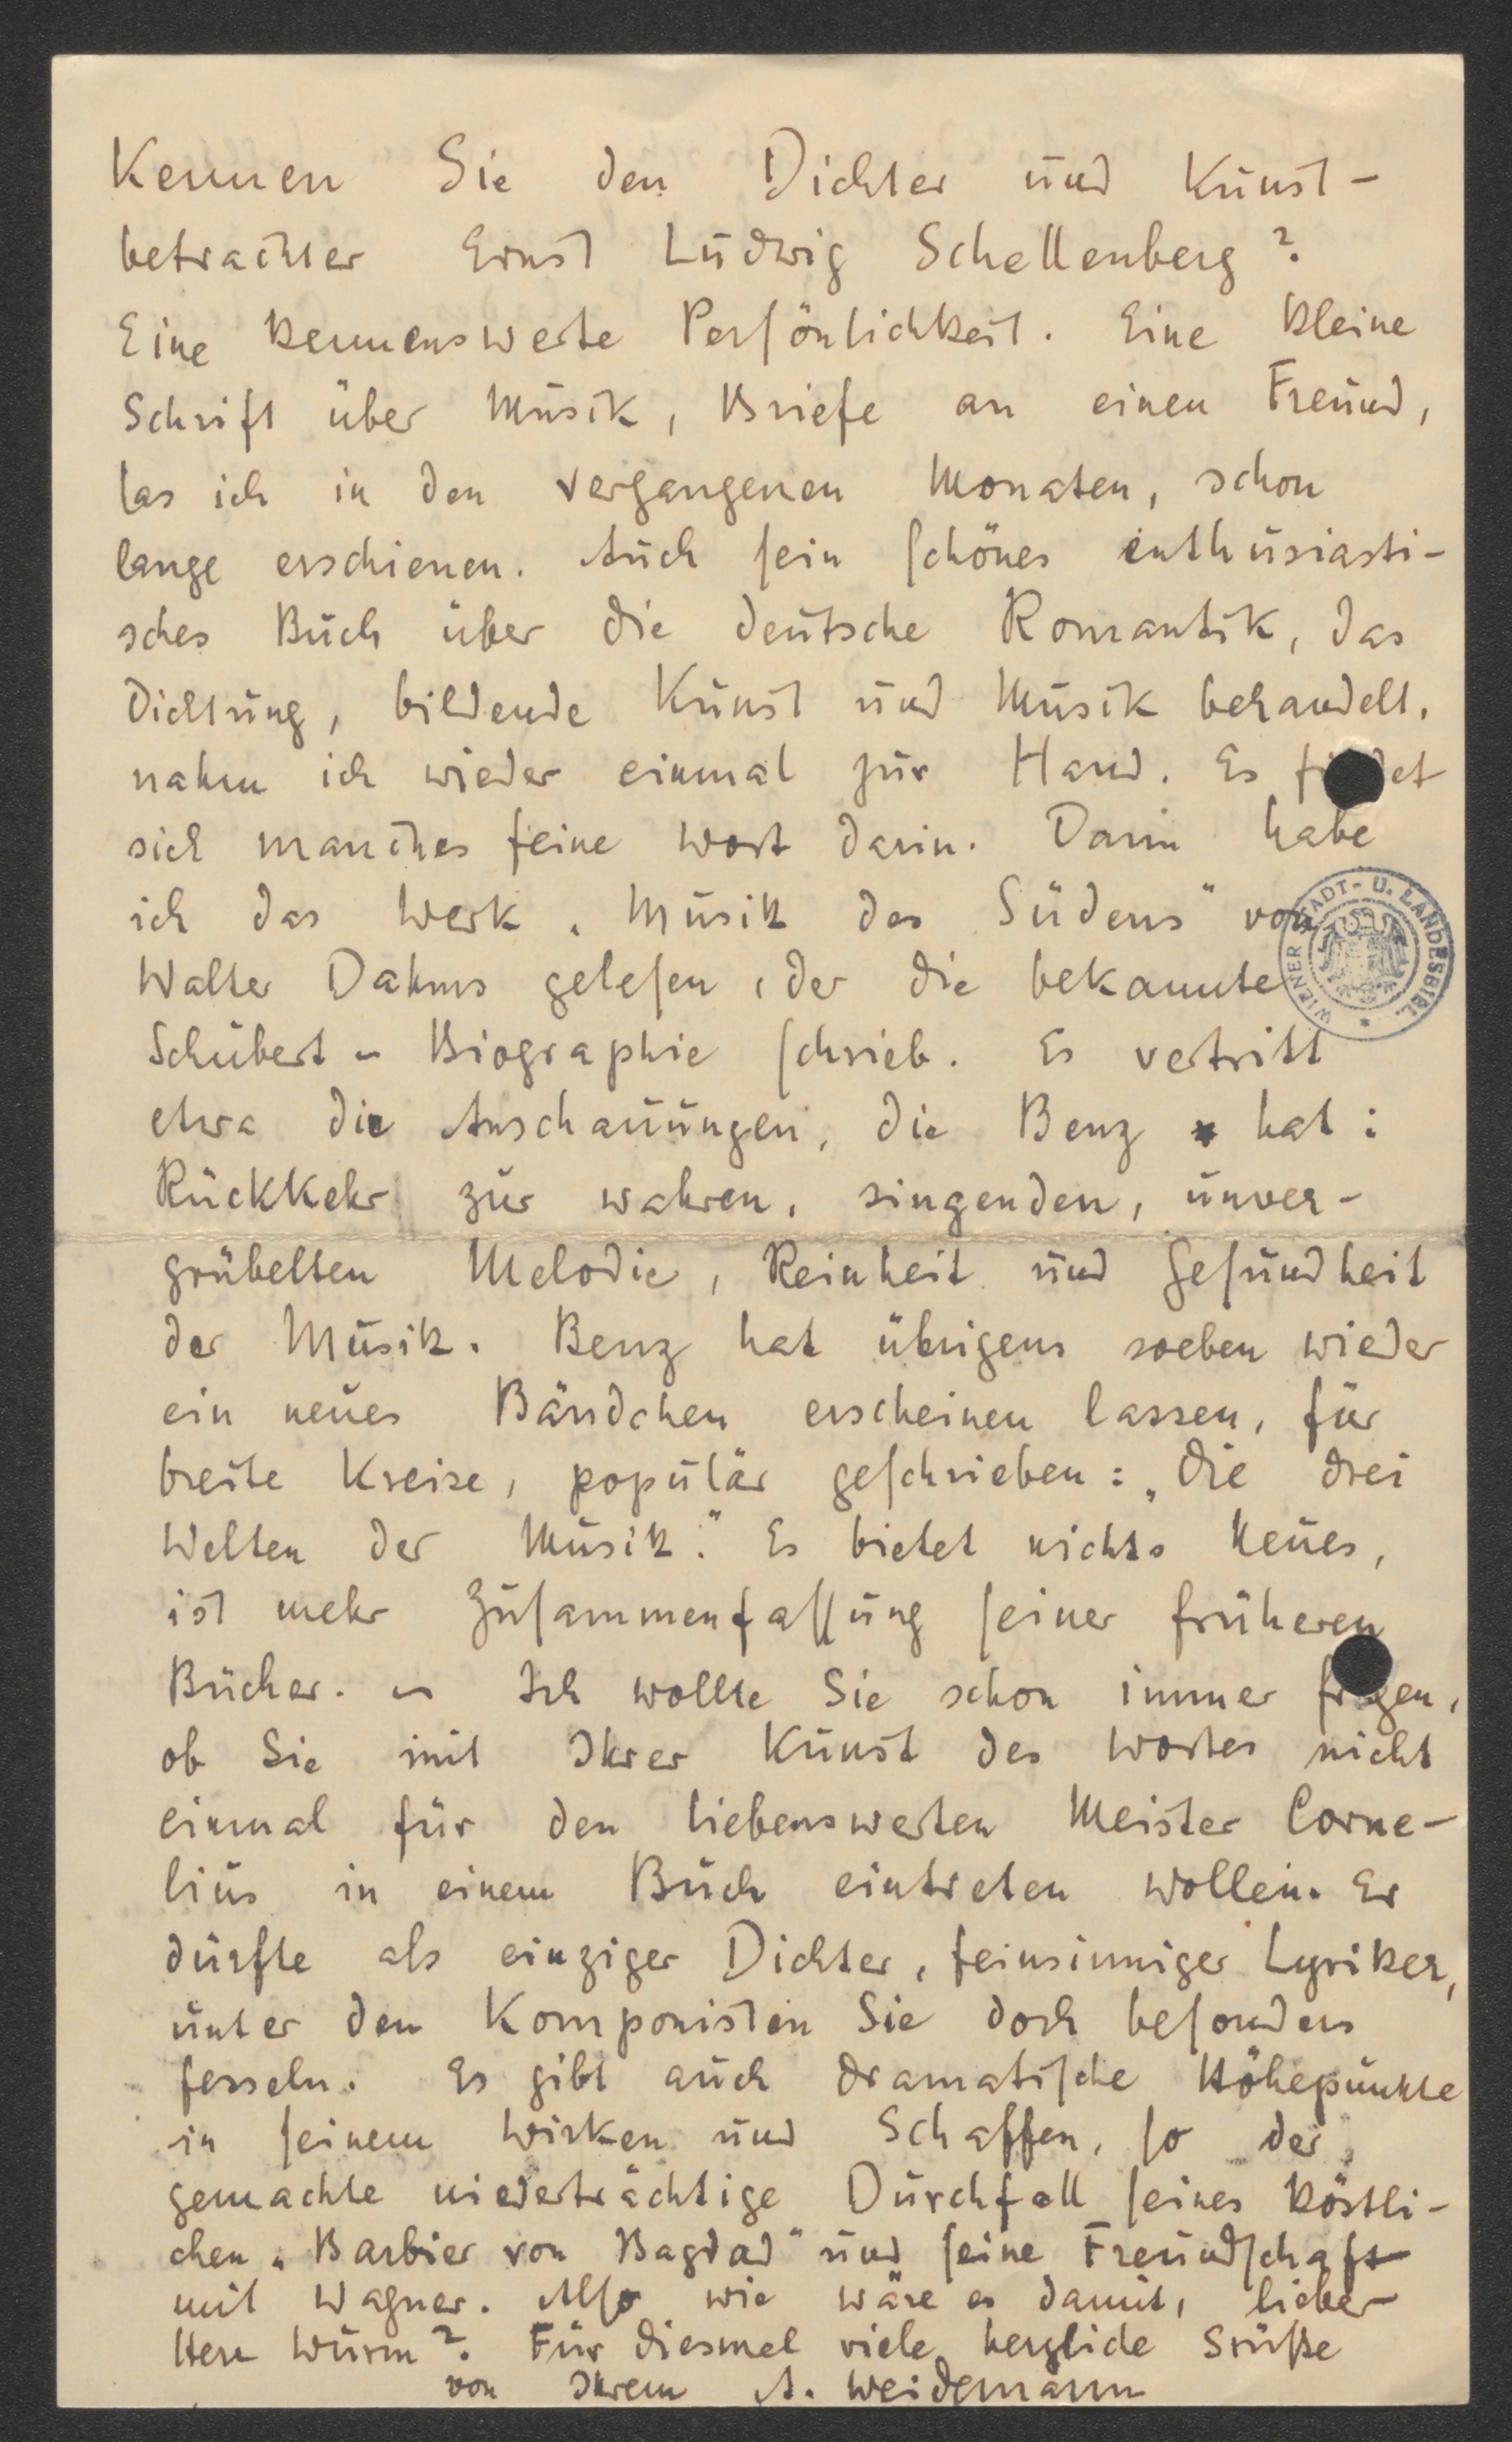 Kennen Sie den Dichter und Kunst-
betrachter Ernst Ludwig Schellenberg?
Eine kennenswerte Persönlichkeit. Eine kleine
Schrift über Musik, Briefe an einen Freund,
las ich in den vergangenen Monaten, schon
lange erschienen. Auch sein schönes enthusiasti-
sches Buch über die deutsche Romantik, das
Dichtung, bildende Kunst und Musik behandelt,
nahm ich wieder einmal zur Hand. Es findet
sich manches feine Wort darin. Dann habe
ich das Werk „Musik des Südens" von
Walter Dahms gelesen, der die bekannte
Schubert-Biographie schrieb. Es vertritt
etwa die Anschauungen, die Benz hat:
Rückkehr zur wahren, singenden, unver-
grübelten Melodie, Reinheit und Gesundheit
der Musik. Benz hat übrigens soeben wieder
ein neues Bändchen erscheinen lassen, für
breite Kreise, populär geschrieben: „Die drei
Welten der Musik." Es bietet nichts Neues,
ist mehr Zusammenfassung seiner früheren
Bücher. – Ich wollte Sie schon immer fragen,
ob Sie mit Ihrer Kunst des Wortes nicht
einmal für den liebenswerten Meister Corne-
lius in einem Buch eintreten wollen. Er
dürfte als einziger Dichter, feinsinniger Lyriker,
unter den Komponisten Sie doch besonders
fesseln. Es gibt auch dramatische Höhepunkte
in seinem Wirken und Schaffen, so der
gemachte niederträchtige Durchfall seines köstli-
chen „Barbier von Bagdad" und seine Freundschaft
mit Wagner. Also wie wäre es damit, lieber
Herr Wurm? Für diesmal viele herzliche Grüße
von Ihrem A. Weidemann
WIENER STADT- U. LANDESBIBL.